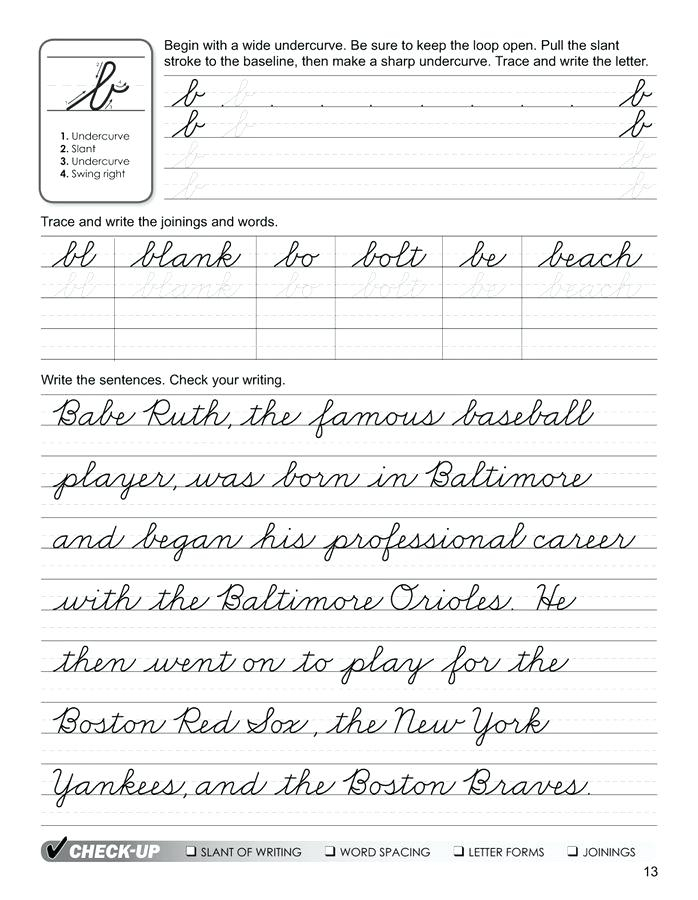 Begin with a wide undercurve. Be sure to keep the loop open. Pull the slant
stroke to the baseline, then make a sharp undercurve. Trace and write the letter.
b
1. Undercurve
2. Slant
3. Undercurve
4. Swing right
b b b
b b b
b b
b b
Trace and write the joinings and words.
bl blank bo bolt be beach
bl blank bo bolt be beach
Write the sentences. Check your writing.
Babe Ruth, the famous baseball
player, was born in Baltimore
and began his professional career
with the Baltimore Orioles. He
then went on to play for the
Boston Red Sox, the New York
Yankees, and the Boston Braves.
CHECK-UP SLANT OF WRITING WORD SPACING LETTER FORMS JOININGS
13